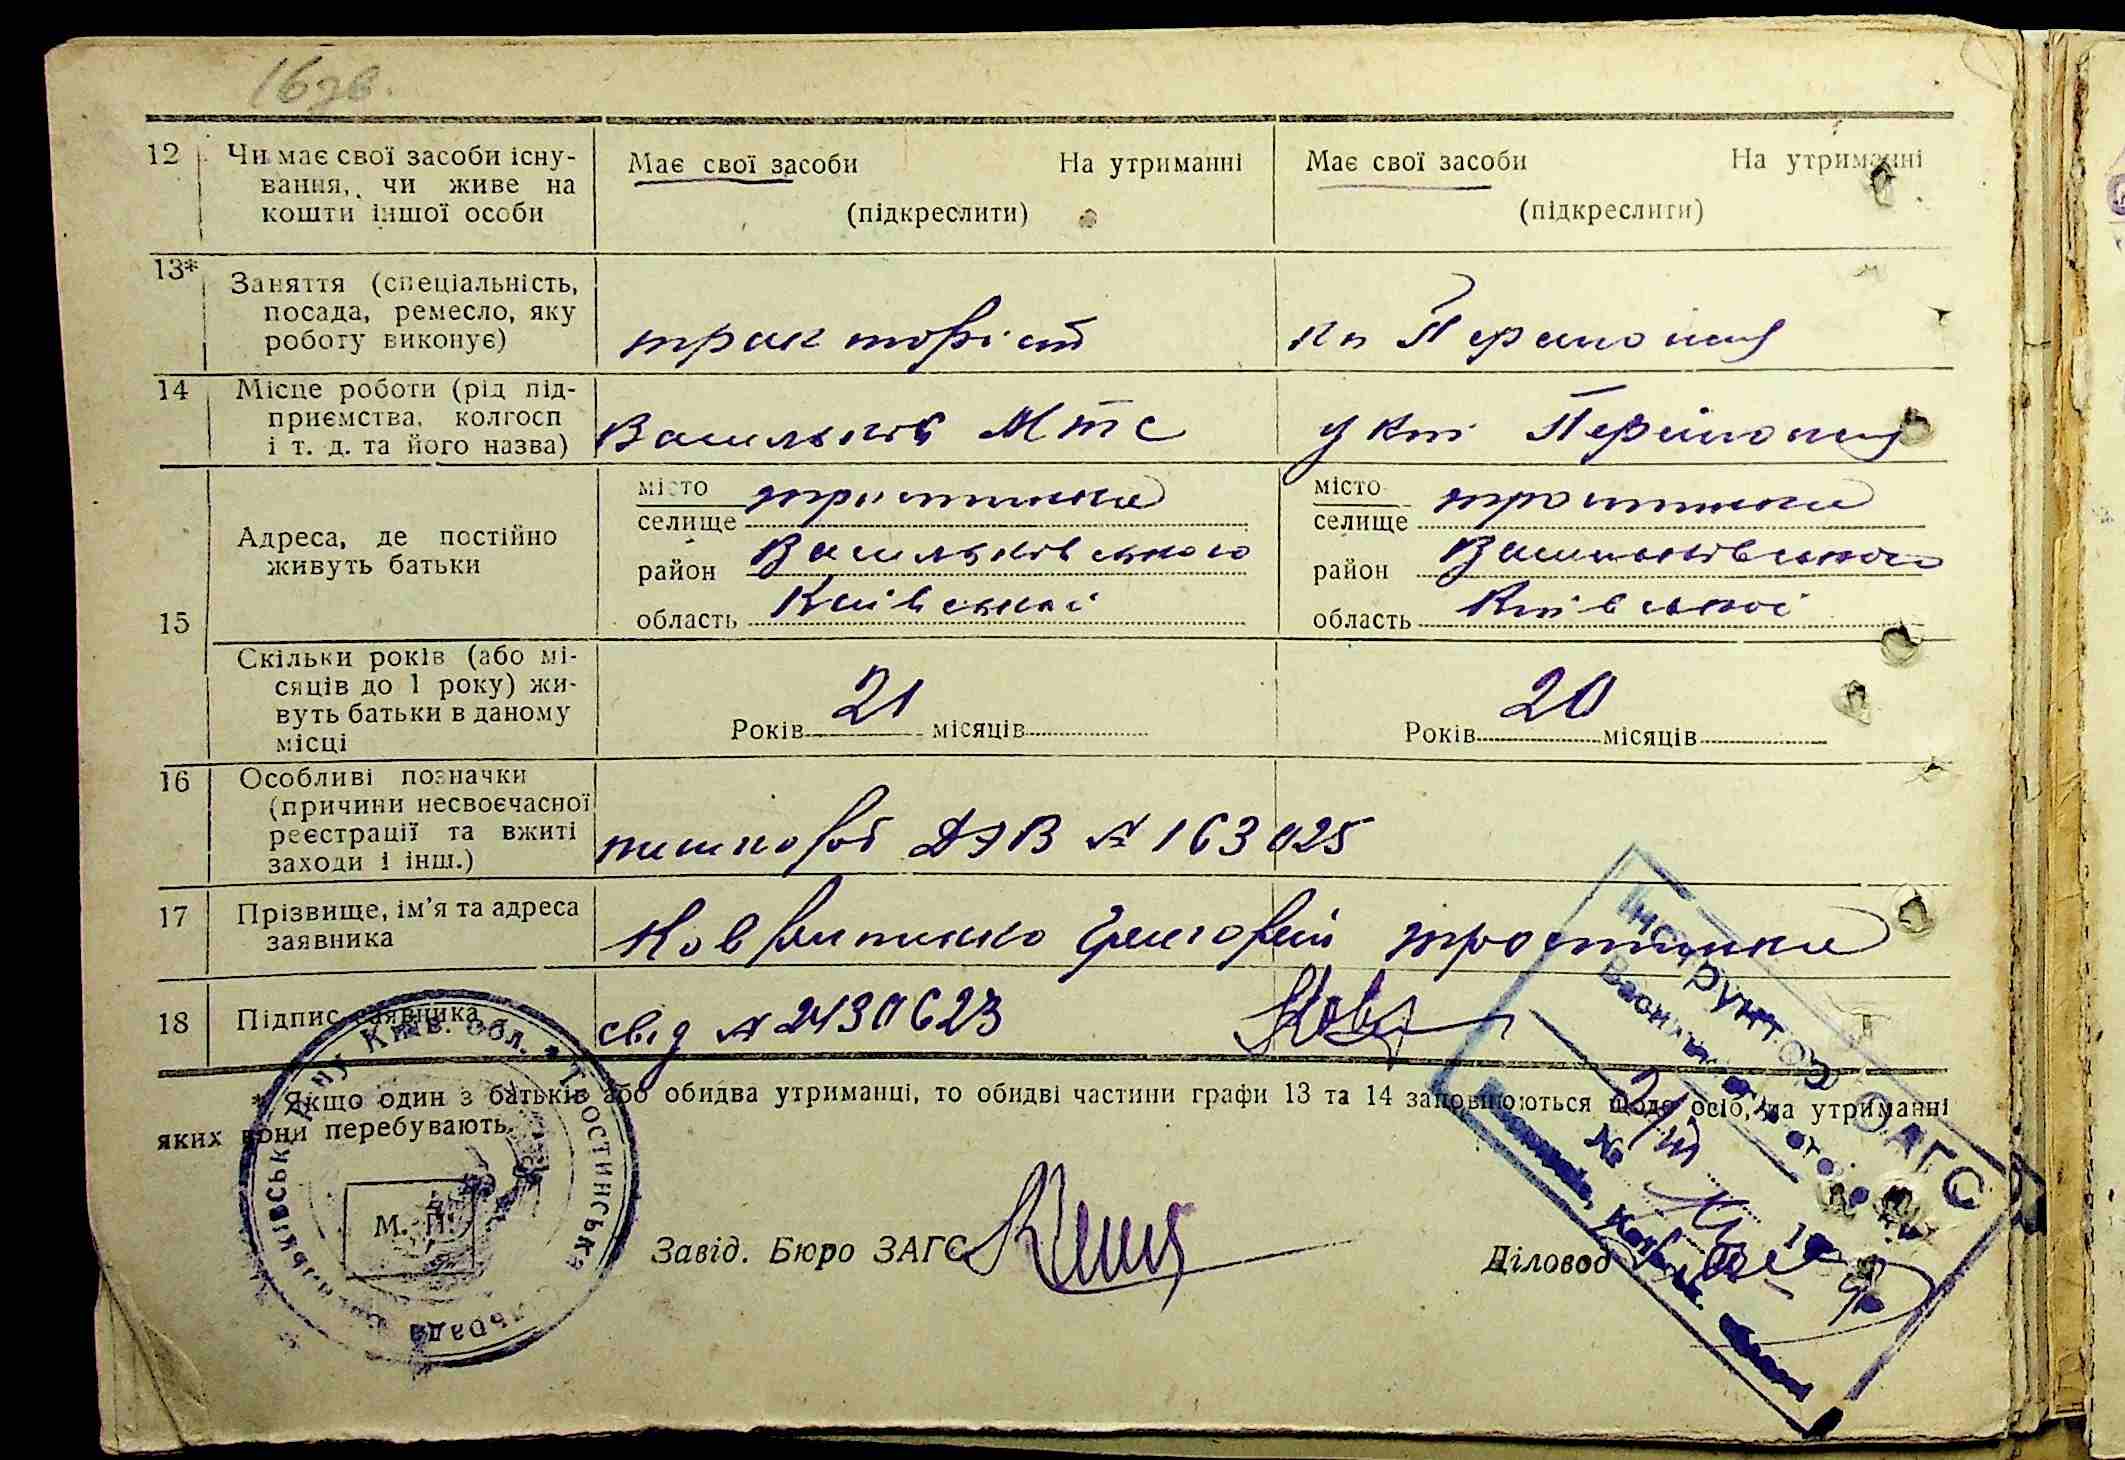 16зв.
12 Чи має свої засоби існу-
вання, чи живе на
кошти іншої особи
Має свої засоби На утриманні
(підкреслити)
Має свої засоби На утриманні
(підкреслити)
13* Заняття (спеціальність,
посада, ремесло, яку
роботу виконує)
тракторіст
кп
14 Місце роботи (рід під-
приємства, колгосп
і т. д. та його назва)
Васильків МТС
у
15 Адреса, де постійно
живуть батьки
місто
селище тростинка
район Васильківського
область Київської
місто
селище тростинка
район Васильківського
область Київської
Скільки років (або мі-
сяців до 1 року) жи-
вуть батьки в даному
місці
Років 21 місяців
Років 20 місяців
16 Особливі позначки
(причини несвоєчасної
реєстрації та вжиті
заходи і інш.)
пашпорт ДЭВ № 163025
17 Прізвище, ім’я та адреса
заявника
Григорій тростинка
18 Підпис заявника
свід № 2430623
* Якщо один з батьків або обидва утриманці, то обидві частини графи 13 та 14 заповнюються щодо осіб, на утриманні
яких вони перебувають.
М. П.
Завід. Бюро ЗАГС
Діловод
Київ. обл. * Тростинська
Сільрада
Інструктор ЗАГС
№